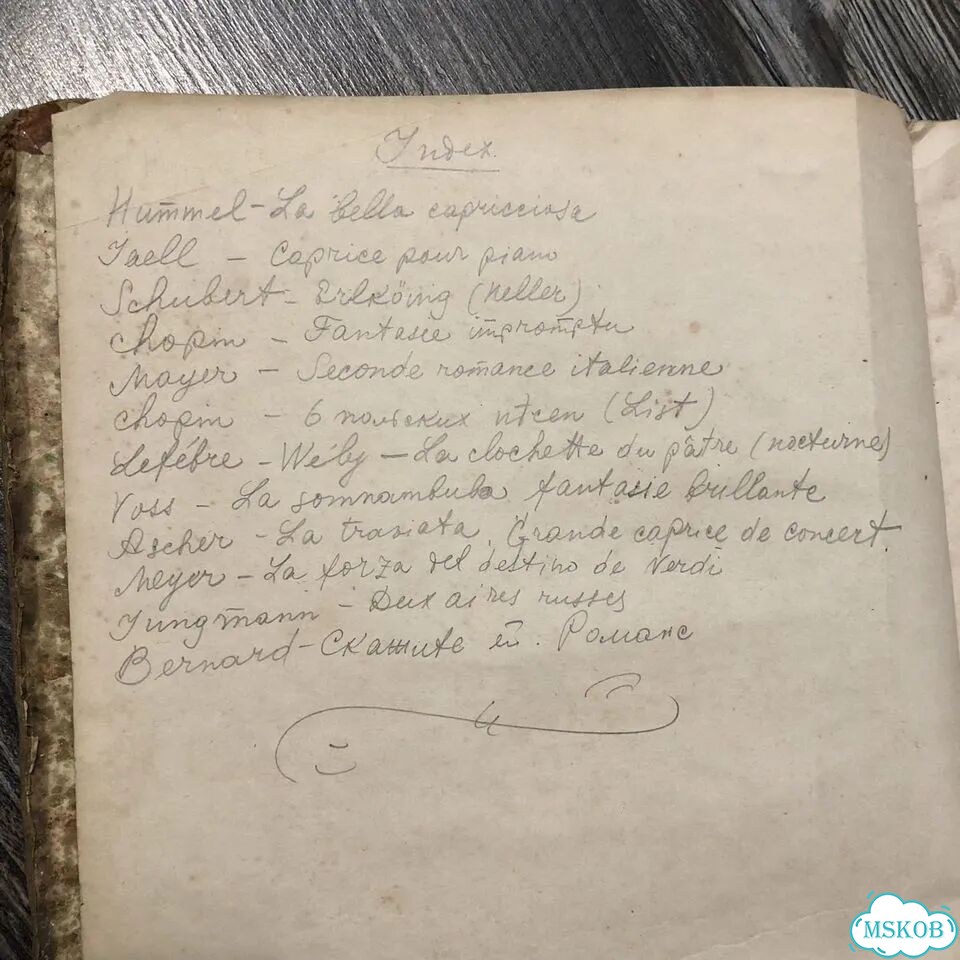 Index.
Hummel - La bella capricciosa
Jaell - Caprice pour piano
Schubert - Erlköing (Heller)
Chopin - Fantasie impromptu
Mayer - Seconde romance italienne
Chopin - 6 польских пѣсен (List)
Lefébre - Wély - La clochette du pâtre (nocturne)
Voss - La somnambula fantasie brillante
Ascher - La traviata, Grande caprice de concert.
Meyer - La forza del destino de Verdi
Jungmann - Deux aires russes
Bernard - Скажите ей. Романс
MSKOB